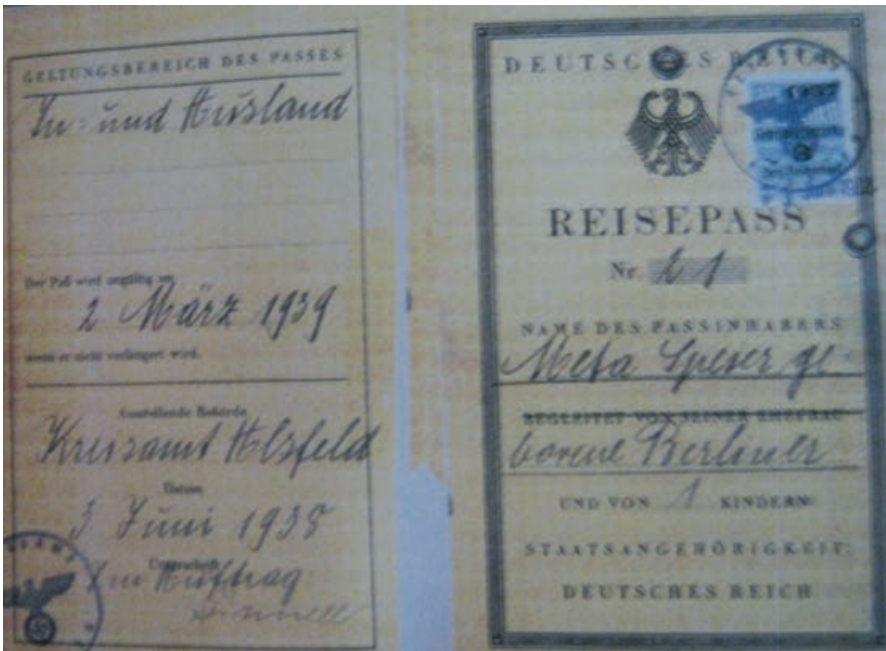 GELTUNGSBEREICH DES PASSES
In- und Ausland
Der Paß wird ungültig am
2 März 1939
wenn er nicht verlängert wird.
Ausstellende Behörde
Kreisamt Alsfeld
Datum
3 Juni 1938
Unterschrift
Im Auftrag
DEUTSCHES REICH
1937
REISEPASS
Nr. 21
NAME DES PASSINHABERS
Meta Speier ge-
BEGLEITET VON SEINER EHEFRAU
borene Berliner
UND VON 1 KINDERN
STAATSANGEHÖRIGKEIT:
DEUTSCHES REICH